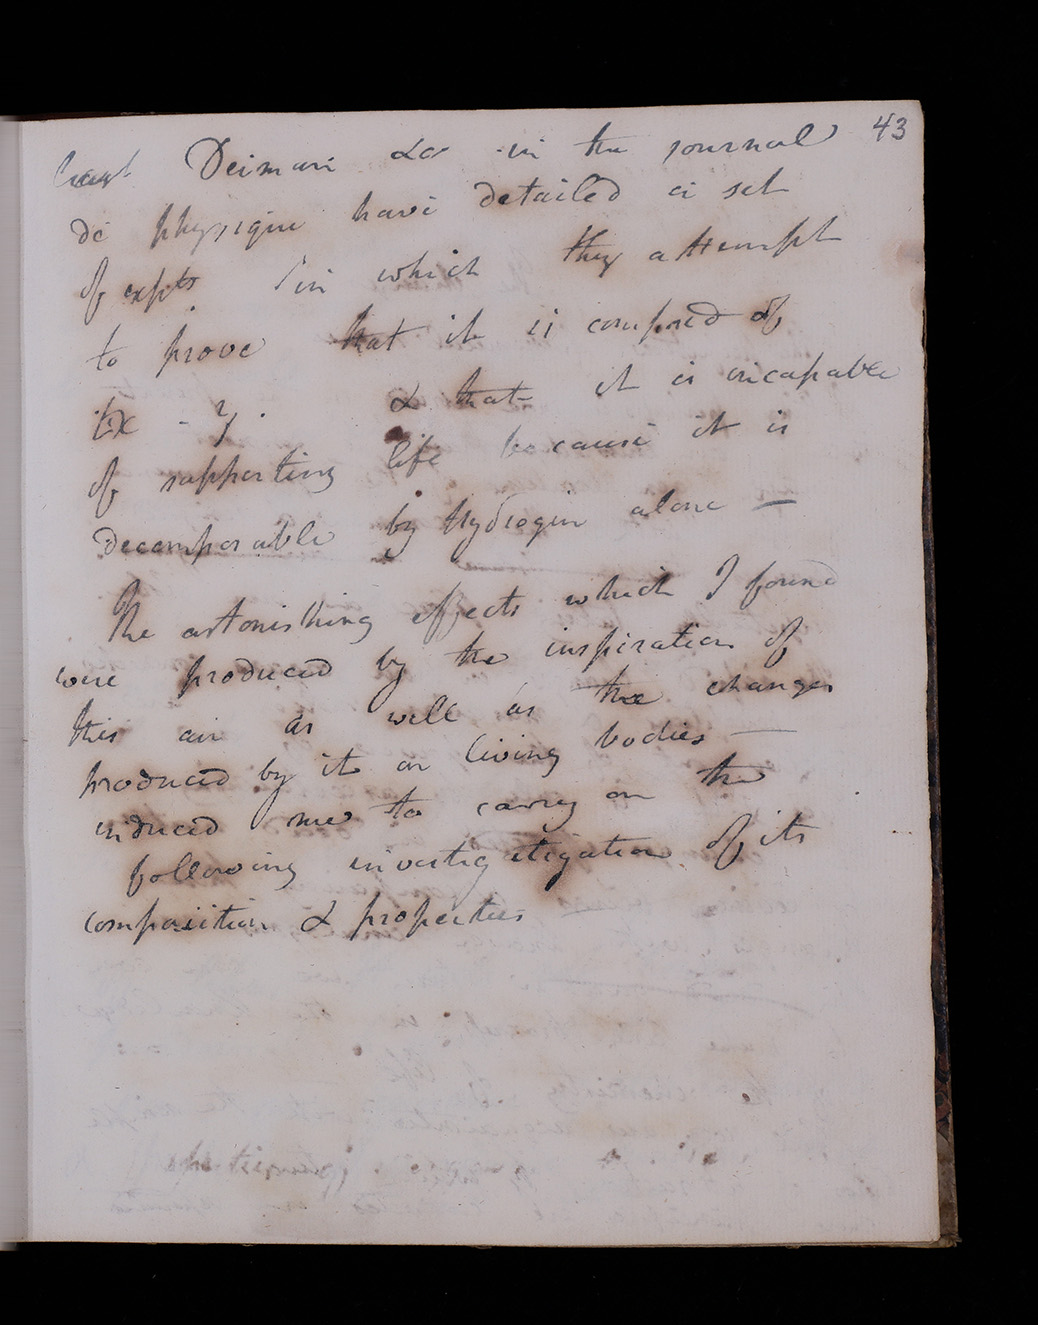 43
Deiman &c in the journal
de physique have detailed a set
of expts in which they attempt
to prove that it is composed of
& that it is incapable
of supporting life because it is
decomposable by Hydrogen alone —
The astonishing effects which I found
were produced by the inspiration of
this air as well as the changes
produced by it on living bodies —
induced me to carry on the
following investigatigation of its
composition & properties